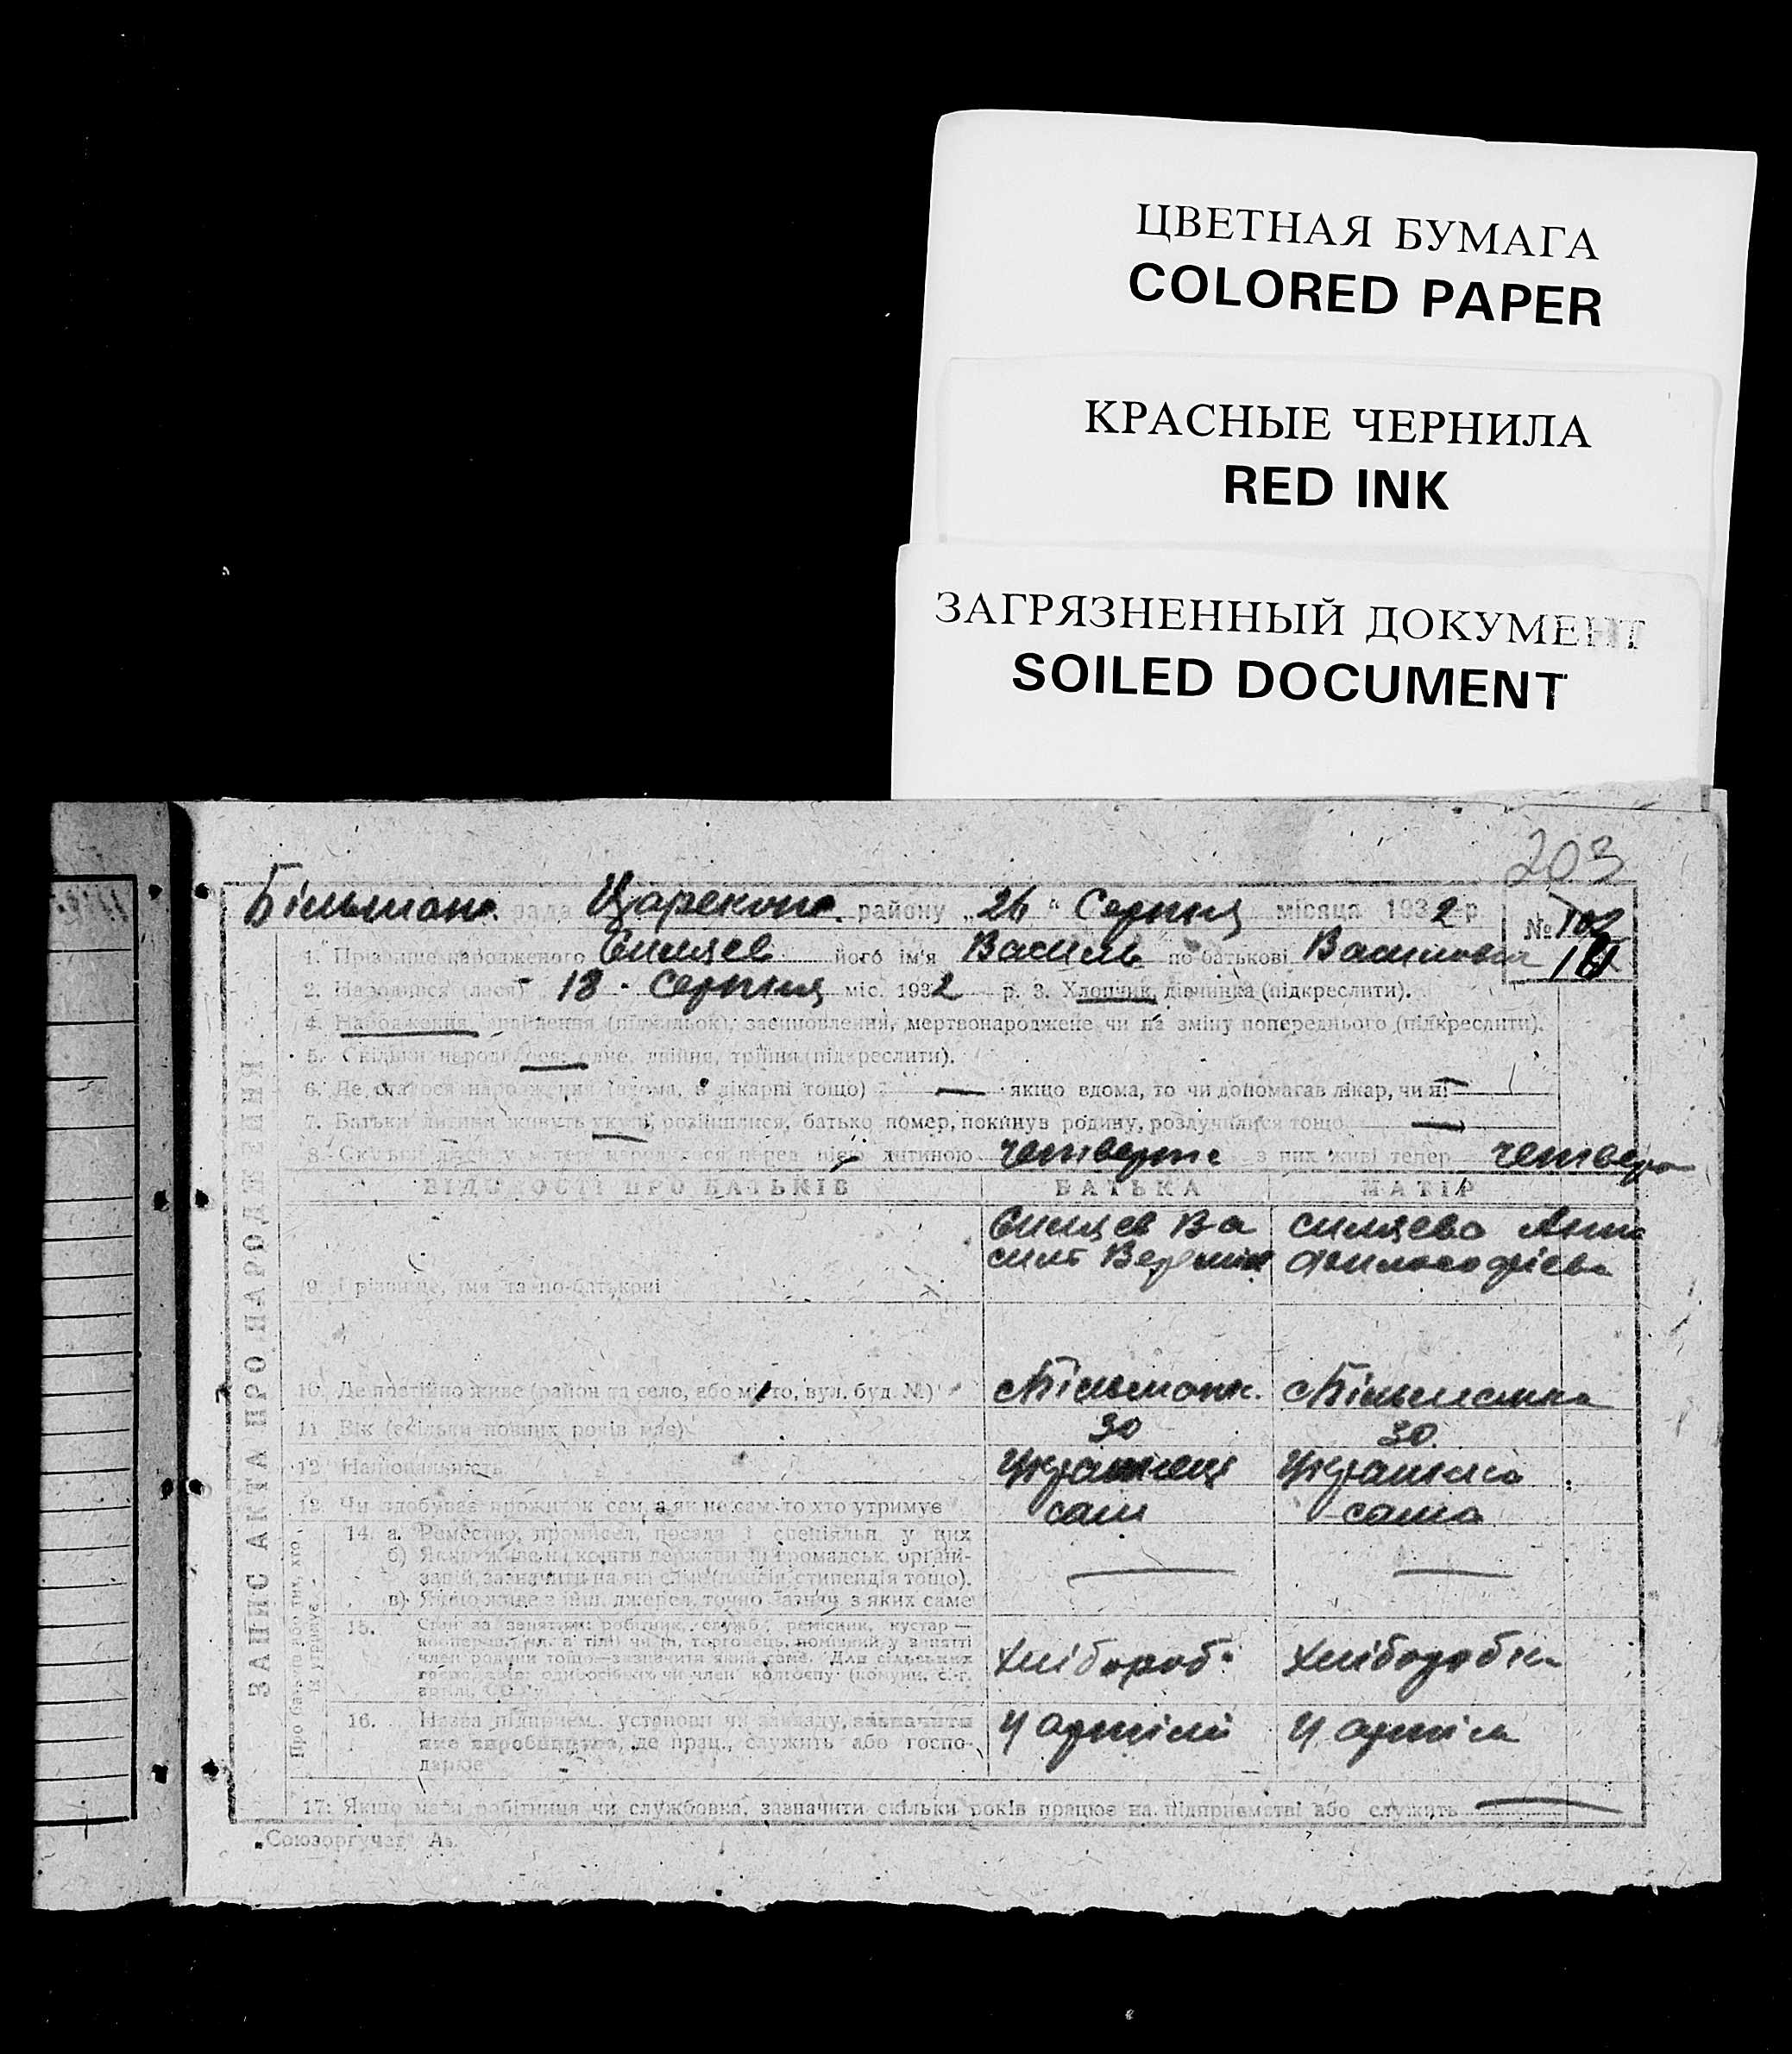 ЦВЕТНАЯ БУМАГА
COLORED PAPER
КРАСНЫЕ ЧЕРНИЛА
RED INK
ЗАГРЯЗНЕННЫЙ ДОКУМЕНТ
SOILED DOCUMENT
203
Більман. рада Царекон. району „26" Серпня місяця 1932 р.
№ 102
101
1. Прізвище народженого Силяев його ім'я Василь по-батькові Василович
2. Народився (лася) 18 Серпня міс. 1932 р. 3. Хлопчик, дівчинка (підкреслити).
4. Народження, засиновлення, мертвонароджене чи на зміну попереднього (підкреслити).
5. Скільки народилося: одне, двійня, трійня (підкреслити).
6. Де сталося народження (вдома, в лікарні тощо) — якщо вдома, то чи допомагав лікар, чи ні —
7. Батьки дитини живуть укупі, розійшлися, батько помер, покинув родину, розлучилися тощо —
8. Скільки дітей у матери народилося перед цією дитиною четверте з них живі тепер четверо
ВІДОМОСТІ ПРО БАТЬКІВ БАТЬКА МАТІР
Силяев Ва Силяева Анна
силь
9. Прізвище, ім'я та по-батькові
10. Де постійно живе (район та село, або місто, вул. буд. №) с Більманк. с Більманка
11. Вік (скільки повних років має) 30 30
12. Національність Українець Українка
13. Чи здобуває прожиток сам, а як не сам, то хто утримує сам сама
14. а. Ремество, промисел, посада і спеціяльн. у них
б) Якщо живе на кошти держави чи громадськ. органі-
зацій, зазначити на які саме (пенсія, стипендія тощо).
в) Якщо живе з інш. джерел, точно зазнач. з яких саме
15. Стан за заняттям: робітник, служб., ремісник, кустар —
член родини тощо — зазначити який саме. Для сільських
Хлібороб Хлібородка
16. Назва підприєм. установи чи закладу, зазначити
яке виробництво, де прац., служить або госпо-
дарює
У артілі У артілі
17. Якщо мати робітниця чи службовка, зазначити скільки років працює на підприємстві або служить —
„Союзоргучет"
ЗАПИС АКТА ПРО НАРОДЖЕННЯ
Про батька або тих, хто
їх утримує